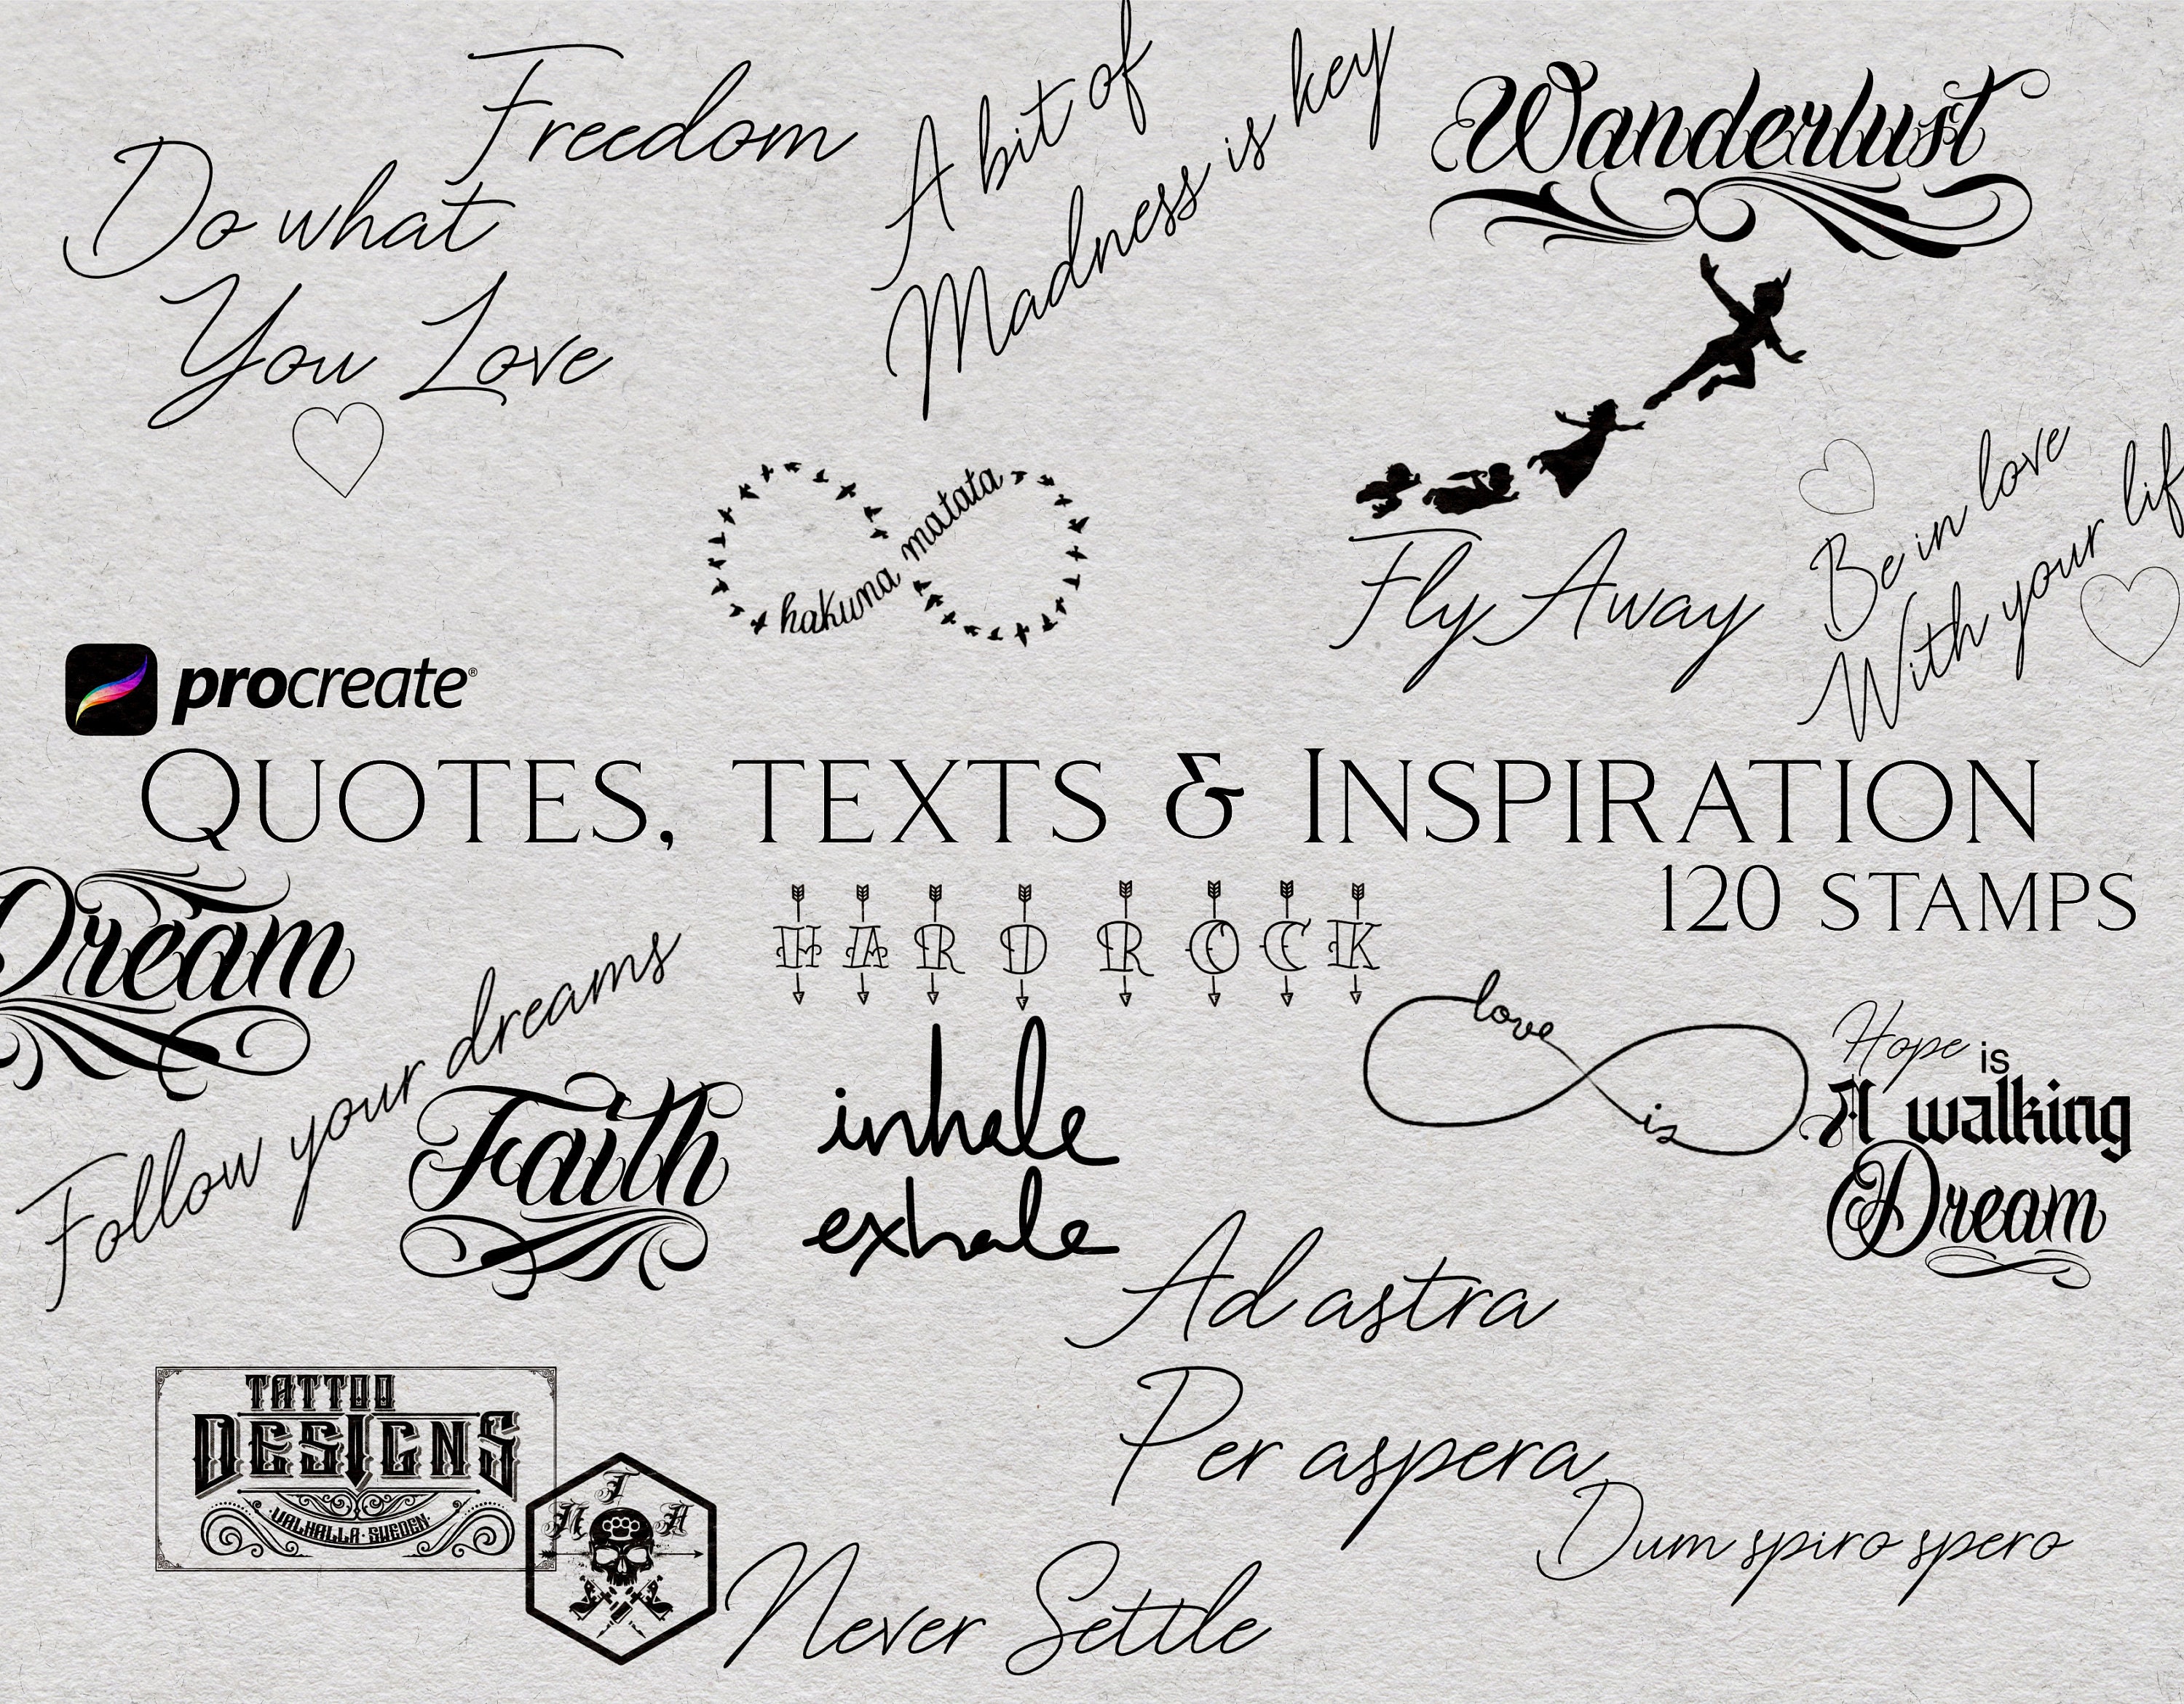 Freedom
Do what
You Love
A bit of
Madness is key
Wanderlust
hakuna matata
Fly Away
Be in love
With your lif
procreate®
QUOTES, TEXTS & INSPIRATION
120 STAMPS
Dream
HARD ROCK
Follow your dreams
Faith
inhale
exhale
love
is
Hope is
A walking
Dream
Ad astra
Per aspera
Dum spiro spero
TATTOO
DESIGNS
VALHALLA · SWEDEN
Never Settle